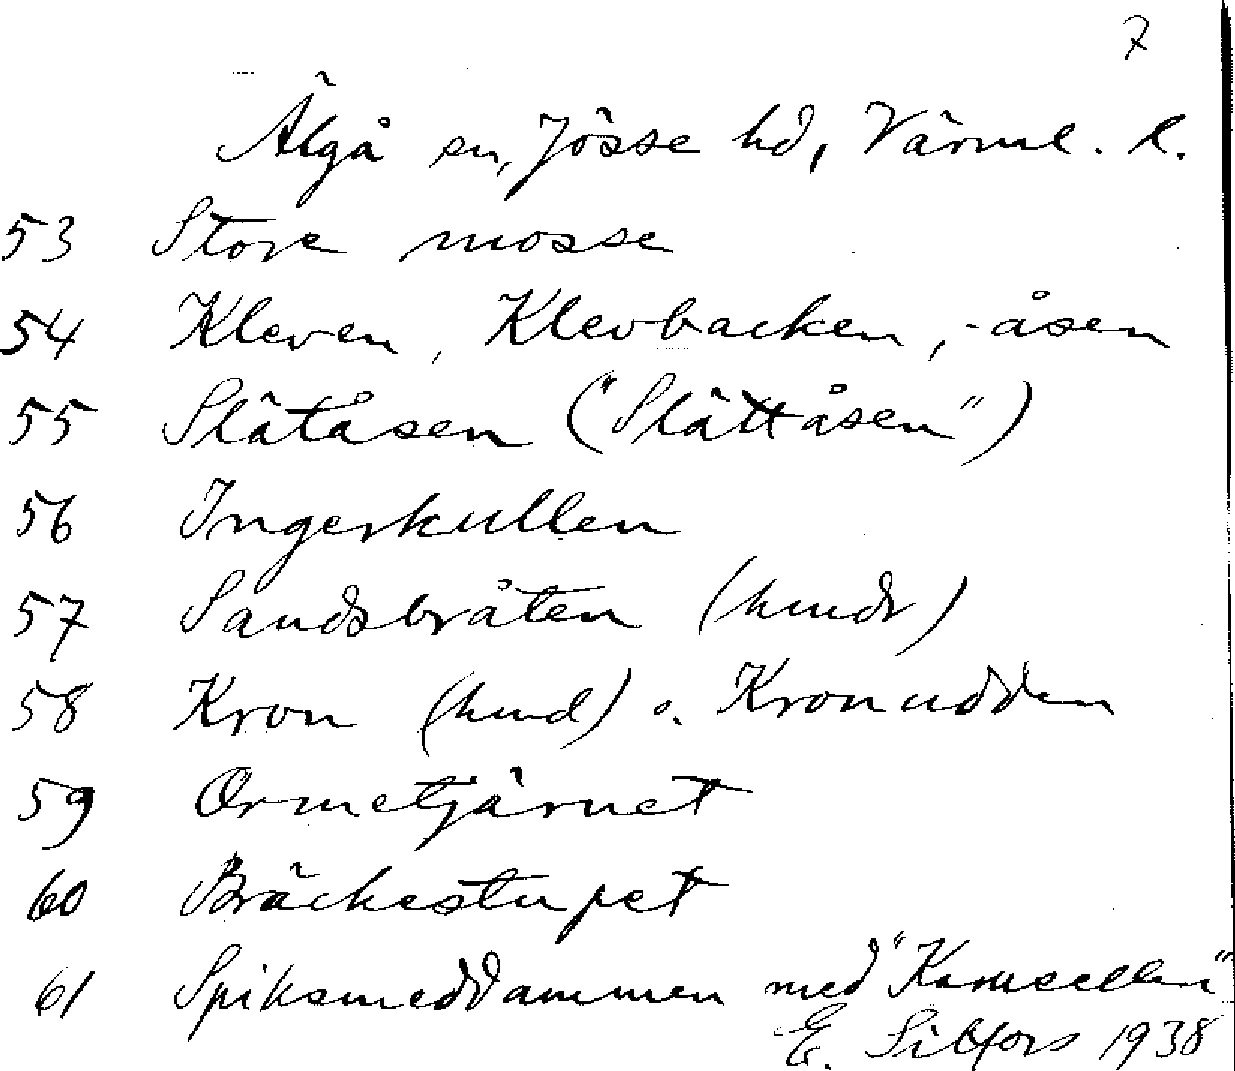 7
Älgå sn, Jösse hd, Värml. l.
53 Store mosse
54 Kleven, Klevbacken, -åsen
55 Slätåsen ("Slåttåsen")
56 Ingerkullen
57 Sandsbråten (hundr)
58 Kron (hund) o. Kronudden
59 Ormetjärnet
60 Bräckestupet
61 Spiksmeddammen med
E. 1938